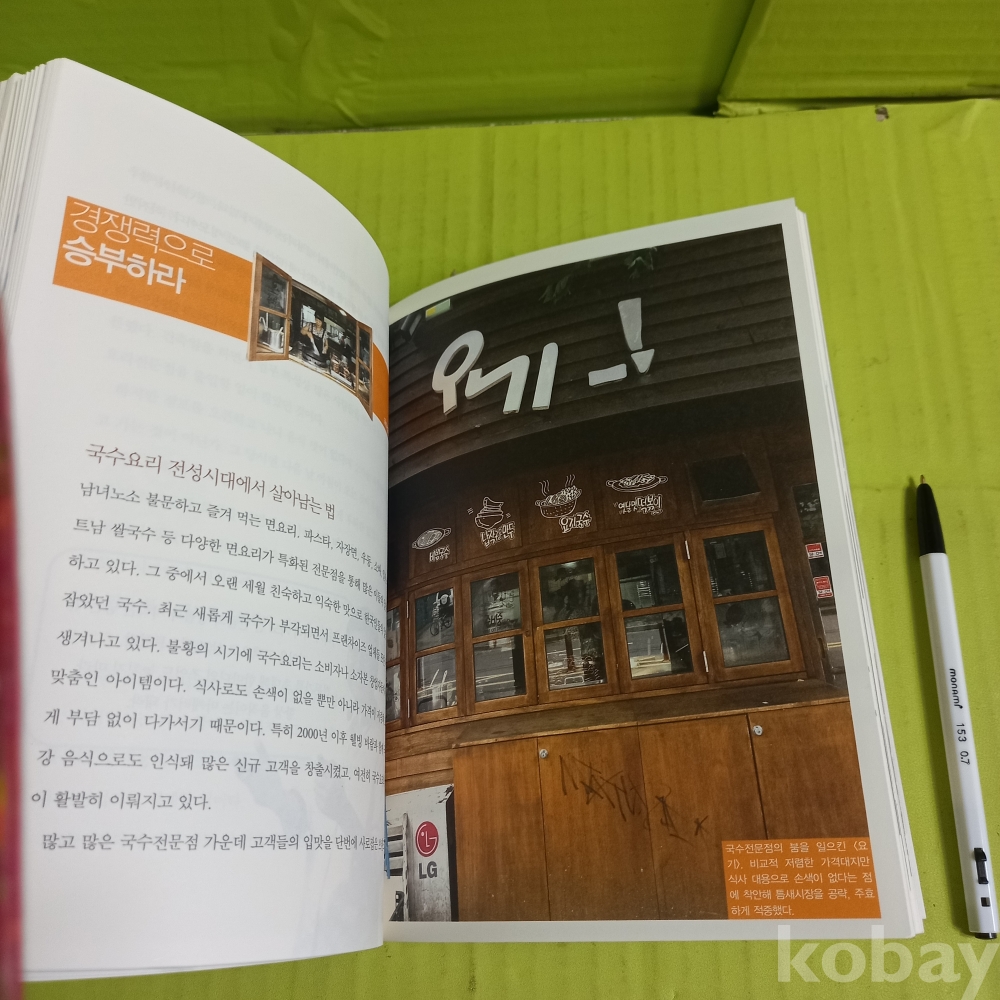 경쟁력으로
승부하라
국수요리 전성시대에서 살아남는 법
남녀노소 불문하고 즐겨 먹는 면요리. 파스타, 자장면, 우동, 소바,
트남 쌀국수 등 다양한 면요리가 특화된 전문점을 통해 많은
하고 있다. 그 중에서 오랜 세월 친숙하고 익숙한 맛으로
잡았던 국수. 최근 새롭게 국수가 부각되면서 프랜차이즈 업체들
생겨나고 있다. 불황의 시기에 국수요리는 소비자나 소자본
맞춤인 아이템이다. 식사로도 손색이 없을 뿐만 아니라 가격이
게 부담 없이 다가서기 때문이다. 특히 2000년 이후 웰빙 바람과
강 음식으로도 인식돼 많은 신규 고객을 창출시켰고, 여전히
이 활발히 이뤄지고 있다.
많고 많은 국수전문점 가운데 고객들의 입맛을 단번에
요기!
비빔국수
요기국수
옛날떡볶이
LG
국수전문점의 붐을 일으킨 〈요
기〉. 비교적 저렴한 가격대지만
식사 대용으로 손색이 없다는 점
에 착안해 틈새시장을 공략, 주효
하게 적중했다.
monami 153 0.7
kobay